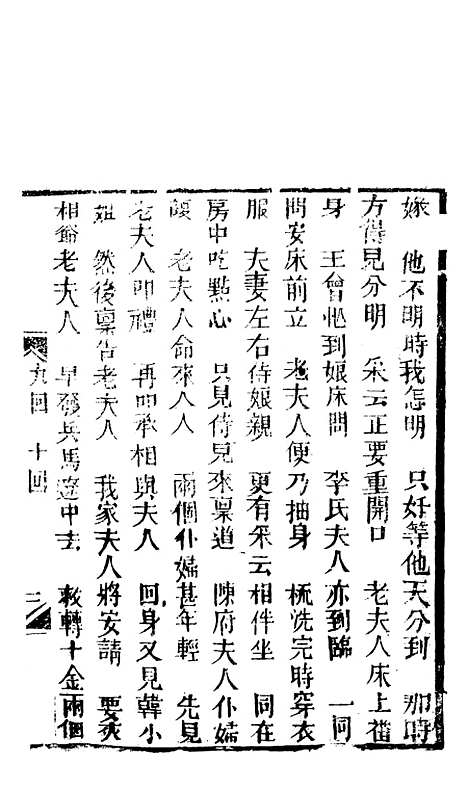 嫁　他不明時我怎明　只好等他天分到　那時
方得見分明　采云正要重開口　老夫人床上番
身　王曾忙到娘床問　李氏夫人亦到臨　一同
問安床前立　老夫人便乃抽身　梳洗完時穿衣
服　夫妻左右侍娘親　更有采云相伴坐　同在
房中吃點心　只見侍兒來稟道　陳府夫人仆婦
　老夫人命來人　兩個仆婦甚年輕　先見
老夫人叩禮　再叩承相與夫人　回身又見韓小
姐　然後稟告老夫人　我家夫人將安請　要求
相爺老夫人　早發兵馬遼中去　救轉十金兩個
九回　十回　二